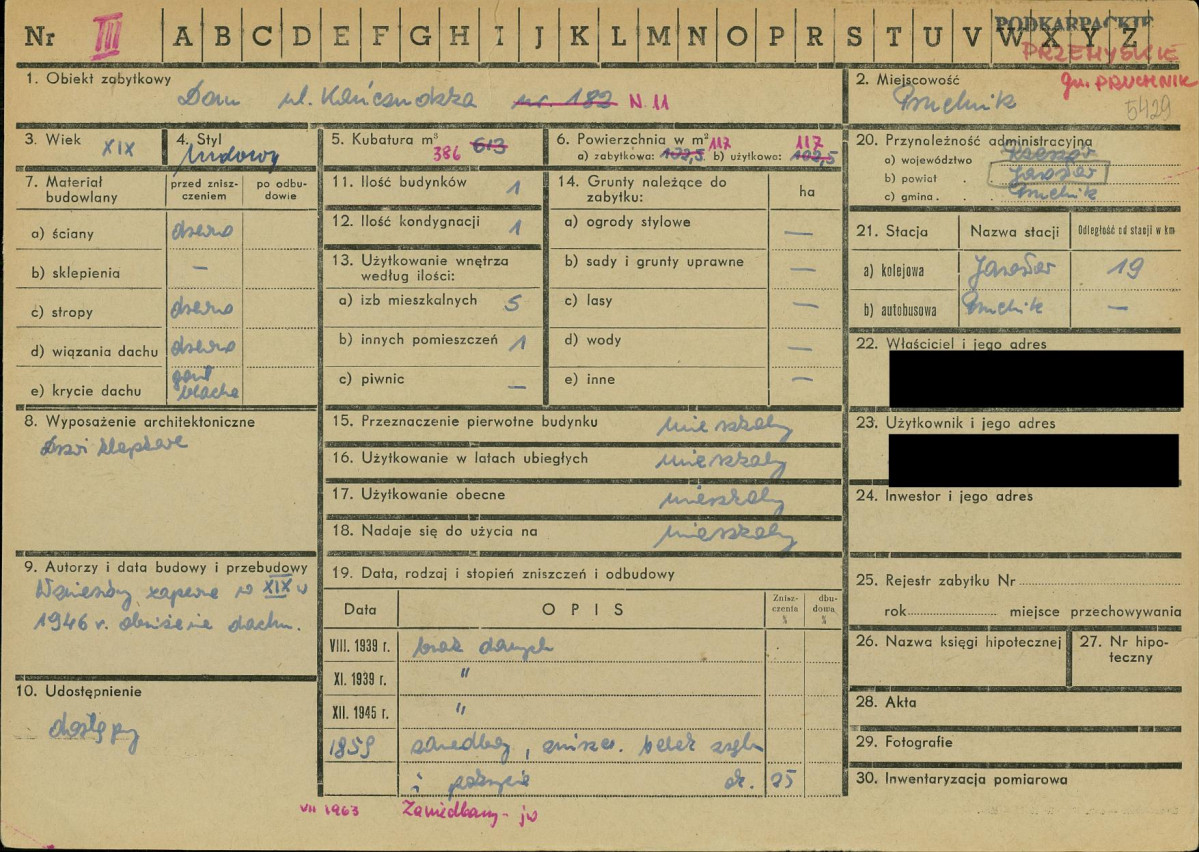 Nr III A B C D E F G H I J K L M N O P R S T U V W X Y Z
PODKARPACKIE
PRZEMYSKIE
gm. PRUCHNIK
5429
1. Obiekt zabytkowy
Dom ul. Kańczudzka nr 182 N. 11
2. Miejscowość
Pruchnik
3. Wiek XIX
4. Styl
ludowy
5. Kubatura m³ 613
386
6. Powierzchnia w m²
a) zabytkowa: 102,5 117 b) użytkowa: 102,5 117
7. Materiał budowlany
przed zniszczeniem
po odbudowie
a) ściany drewno
b) sklepienia —
c) stropy drewno
d) wiązania dachu drewno
e) krycie dachu gont
blacha
8. Wyposażenie architektoniczne
Drzwi klepkowe
9. Autorzy i data budowy i przebudowy
Wzniesiony zapewne w XIX w
1946 r. obniżenie dachu.
10. Udostępnienie
dostępny
11. Ilość budynków 1
12. Ilość kondygnacji 1
13. Użytkowanie wnętrza
według ilości:
a) izb mieszkalnych 5
b) innych pomieszczeń 1
c) piwnic —
14. Grunty należące do
zabytku:
ha
a) ogrody stylowe —
b) sady i grunty uprawne —
c) lasy —
d) wody —
e) inne —
15. Przeznaczenie pierwotne budynku mieszkalny
16. Użytkowanie w latach ubiegłych mieszkalny
17. Użytkowanie obecne mieszkalny
18. Nadaje się do użycia na mieszkalny
19. Data, rodzaj i stopień zniszczeń i odbudowy
Data OPIS Zniszczenia % dbudowa %
VIII. 1939 r. brak danych
XI. 1939 r. "
XII. 1945 r. "
1959 zaniedbany, zniszcz. belek zrębu
i pokrycie ok. 25
VII 1963 Zaniedbany - jw
20. Przynależność administracyjna
a) województwo Rzeszów
b) powiat Jarosław
c) gmina Pruchnik
21. Stacja Nazwa stacji Odległość od stacji w km
a) kolejowa Jarosław 19
b) autobusowa Pruchnik —
22. Właściciel i jego adres
23. Użytkownik i jego adres
24. Inwestor i jego adres
25. Rejestr zabytku Nr
rok miejsce przechowywania
26. Nazwa księgi hipotecznej
27. Nr hipoteczny
28. Akta
29. Fotografie
30. Inwentaryzacja pomiarowa